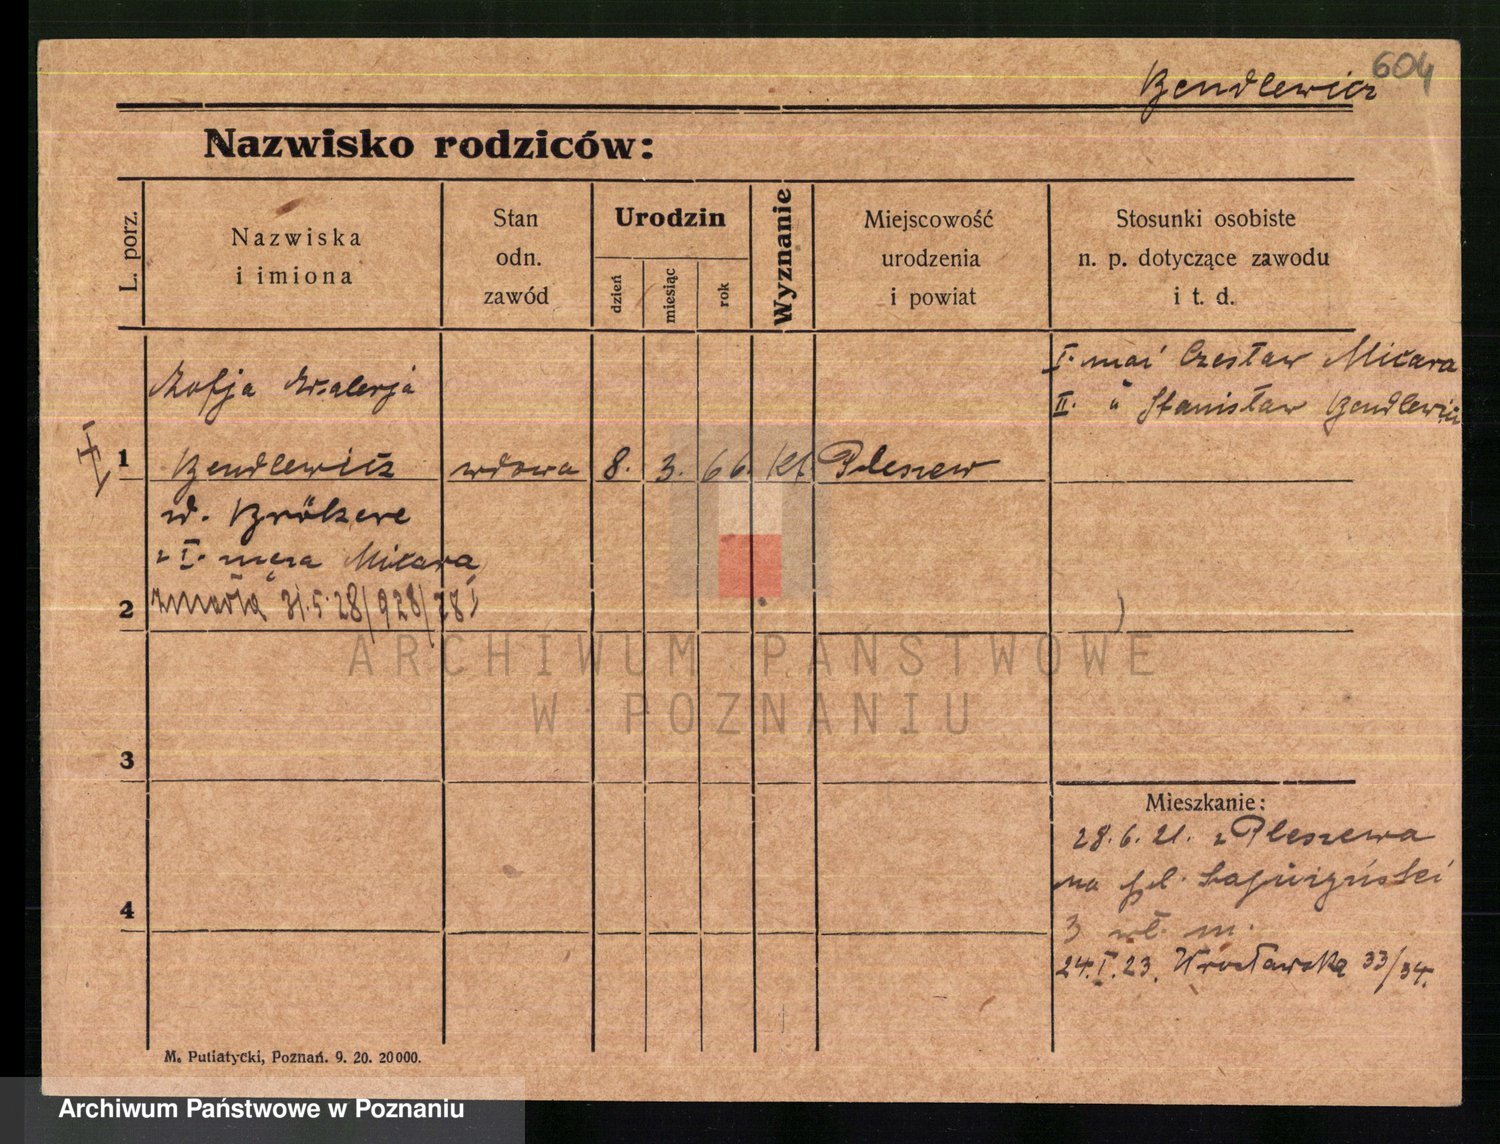 604
Bendlewicz
Nazwisko rodziców:
L. porz.
Nazwiska
i imiona
Stan
odn.
zawód
Urodzin
dzień
miesiąc
rok
Wyznanie
Miejscowość
urodzenia
i powiat
Stosunki osobiste
n. p. dotyczące zawodu
i t. d.
I. mąż Czesław Mikara
II. " Stanisław Bendlewicz
Zofja Walerja
1 Bendlewicz wdowa 8. 3. 66. Kt. Pleszew
z I. męża Mikara
2 zmarła 31.5.28/928/28
3
4
Mieszkanie:
28.6.21. z Pleszewa
na pl.
3 wł. m.
24.I.23. Wrocławska 33/34.
M. Putiatycki, Poznań. 9. 20. 20000.
ARCHIWUM PAŃSTWOWE
W POZNANIU
Archiwum Państwowe w Poznaniu